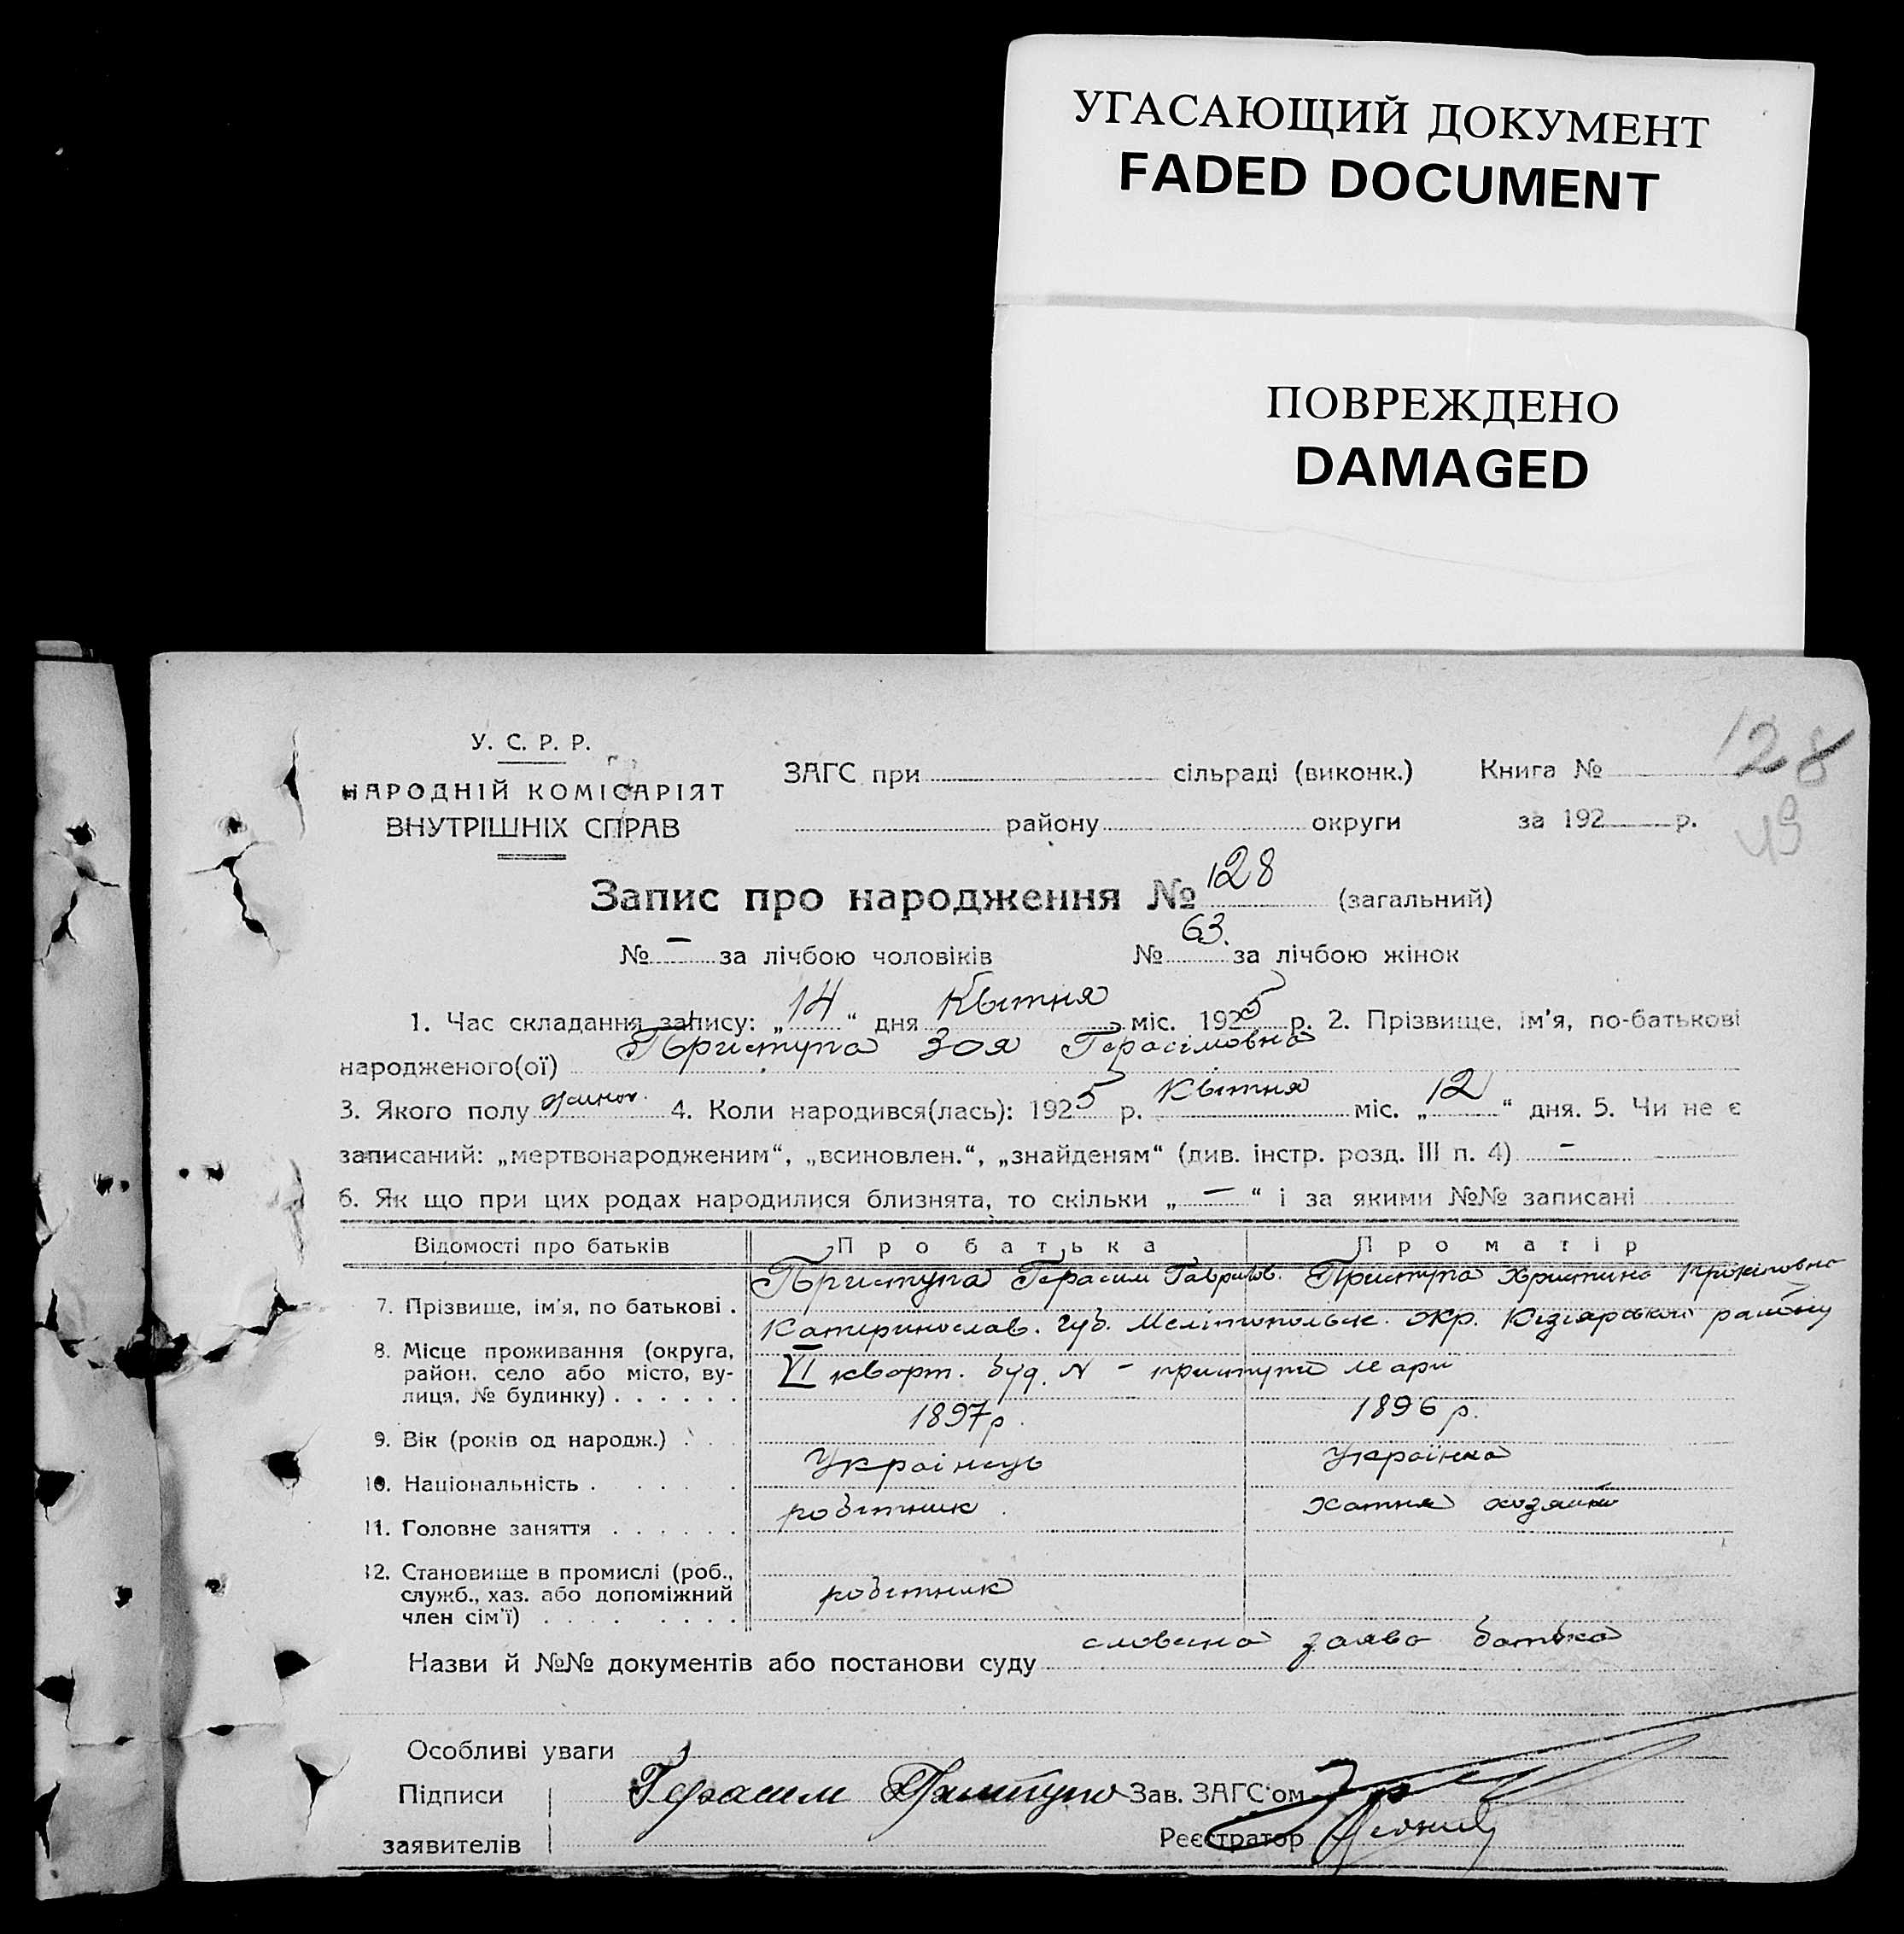 УГАСАЮЩИЙ ДОКУМЕНТ
FADED DOCUMENT
ПОВРЕЖДЕНО
DAMAGED
128
49
У. С. Р. Р.
НАРОДНІЙ КОМІСАРІЯТ
ВНУТРІШНІХ СПРАВ
ЗАГС при сільраді (виконк.) Книга №
району округи за 192 р.
Запис про народження № 128 (загальний)
№ – за лічбою чоловіків № 63. за лічбою жінок
1. Час складання запису: „14“ дня Квітня міс. 1925 р. 2. Прізвище, ім'я, по-батькові
народженого(ої) Приступа Зоя Герасімовна
3. Якого полу жиноч. 4. Коли народився(лась): 1925 р. Квітня міс. „12“ дня. 5. Чи не є
записаний: „мертвонародженим“, „всиновлен.“, „знайденям“ (див. інстр. розд. III п. 4) –
6. Як що при цих родах народилися близнята, то скільки „–“ і за якими №№ записані
Відомості про батьків Про батька Про матір
7. Прізвище, ім'я, по батькові . Приступа Герасим Гаврилов. Приступа Христина
8. Місце проживання (округа, район, село або місто, вулиця, № будинку) . . . . . . Катеринослав. губ. Мелітопольск. окр. Кізіярський району
VI кварт. буд. N – приступи Мари
9. Вік (років од народж.) . . . 1897 р. 1896 р.
10. Національність . . . . . Українець Українка
11. Головне заняття . . . . . . робітник хатня хозяйка
12. Становище в промислі (роб., служб., хаз. або допоміжний член сім'ї) . . . . . . . робітник
Назви й №№ документів або постанови суду словесна заява батька
Особливі уваги
Підписи Герасим Приступа Зав. ЗАГС'ом
заявителів Реєстратор